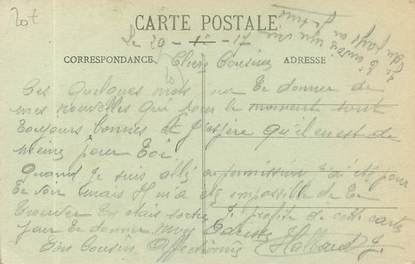 20t
CARTE POSTALE
Le 29 - 1 - 17
CORRESPONDANCE
ADRESSE
Chère Cousine
Ces quelques mots pour te donner de
mes nouvelles qui pour le moment sont
toujours bonnes et j'espère qu'il en est de
même pour toi.
Quand je suis allé en permission j'ai été pour
te voir mais il m'a été impossible de te
trouver tu étais sortie. Je profite de cette carte
pour te donner mon adresse
Ton Cousin Affectionné